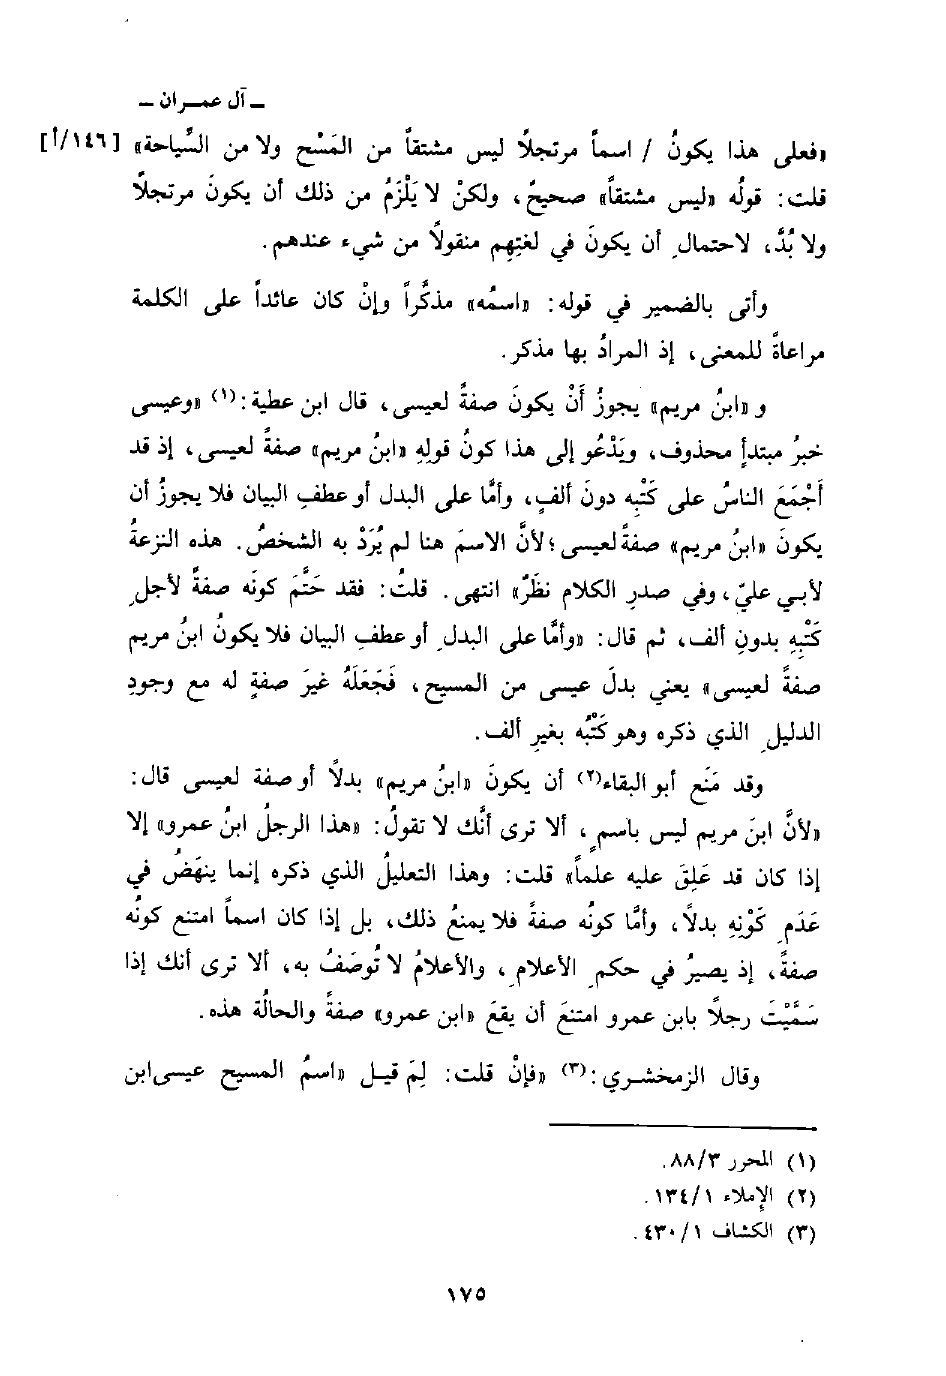 ـ آل عمـران ـ
«فعلى هذا يكونُ / اسماً مرتجلاً ليس مشتقاً من المَسْح ولا من السِّياحة» [١٤٦/أ]
قلت: قولُه «ليس مشتقاً» صحيحٌ، ولكنْ لا يَلْزَمُ من ذلك أن يكونَ مرتجلاً
ولا بُدَّ، لاحتمالِ أن يكونَ في لغتِهم منقولاً من شيء عندهم.
وأتى بالضمير في قوله: «اسمُه» مذكَّراً وإنْ كان عائداً على الكلمة
مراعاةً للمعنى، إذ المرادُ بها مذكر.
و «ابنُ مريم» يجوزُ أَنْ يكونَ صفةً لعيسى، قال ابن عطية:(١) «وعيسى
خبرُ مبتدأٍ محذوف، ويَدْعُو إلى هذا كونُ قولِه «ابنُ مريم» صفةً لعيسى، إذ قد
أَجْمَعَ الناسُ على كَتْبِه دونَ ألفٍ، وأمَّا على البدل أو عطفِ البيان فلا يجوزُ أن
يكونَ «ابنُ مريم» صفةً لعيسى؛ لأنَّ الاسمَ هنا لم يُرَدْ به الشخصُ. هذه النزعةُ
لأبي عليّ، وفي صدرِ الكلام نظَرٌ» انتهى. قلتُ: فقد حَتَّمَ كونَه صفةً لأجلِ
كَتْبِهِ بدونِ ألف، ثم قال: «وأمَّا على البدلِ أو عطفِ البيان فلا يكونُ ابنُ مريم
صفةً لعيسى» يعني بدلَ عيسى من المسيح، فَجَعَلَهُ غيرَ صفةٍ له مع وجودِ
الدليلِ الذي ذكره وهو كَتْبُه بغيرِ ألف.
وقد مَنَع أبو البقاء(٢) أن يكونَ «ابنُ مريم» بدلاً أو صفة لعيسى قال:
«لأنَّ ابنَ مريم ليس باسمٍ، ألا ترى أنَّك لا تقولُ: «هذا الرجلُ ابنُ عمرو» إلا
إذا كان قد عَلِقَ عليه علماً» قلت: وهذا التعليلُ الذي ذكره إنما ينهَضُ في
عَدَمِ كَوْنِهِ بدلاً، وأمَّا كونُه صفةً فلا يمنعُ ذلك، بل إذا كان اسماً امتنع كونُه
صفةً، إذ يصيرُ في حكمِ الأعلامِ، والأعلامُ لا تُوصَفُ به، ألا ترى أنك إذا
سَمَّيْتَ رجلاً بابن عمرو امتنعَ أن يقعَ «ابن عمرو» صفةً والحالُة هذه.
وقال الزمخشـري:(٣) «فإنْ قلت: لِمَ قيـل «اسمُ المسيح عيسى ابن
(١) المحرر ٣/٨٨.
(٢) الإملاء ١/١٣٤.
(٣) الكشاف ١/٤٣٠.
١٧٥